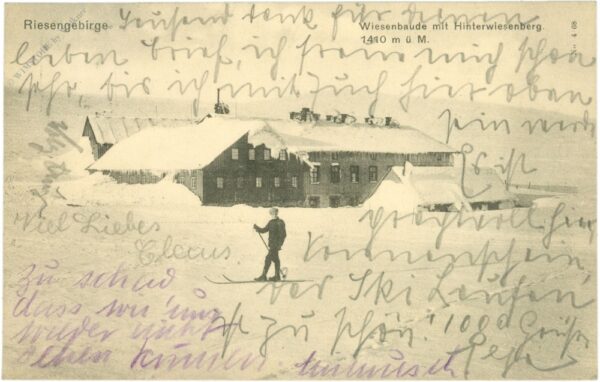 Riesengebirge.
Wiesenbaude mit Hinterwiesenberg.
1410 m ü M.
Tausend Dank für Deinen
lieben Brief, ich freue mich schon
sehr, bis ich mit Euch hier oben
sein werde
Es ist
prachtvoll hier,
Sonnenschein,
das Ski Laufen
ist zu schön! 1000 Grüße
Viel Liebes
Claus
Zu schad
dass wir uns
wieder nicht
sehen können